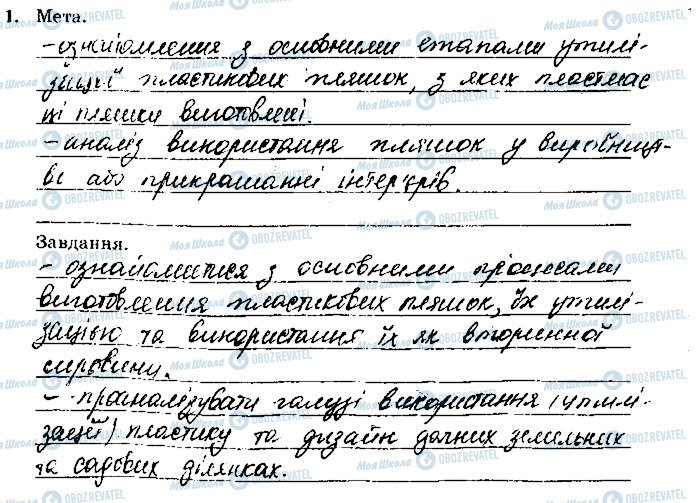 1. Мета.
- ознайомлення з основними етапами утилі-
зації пластикових пляшок, з яких пластмас
ці пляшки виготовлені.
- аналіз використання пляшок у виробницт-
ві або прикрашанні інтер'єрів.
Завдання.
- ознайомитися з основними процесами
виготовлення пластикових пляшок, їх утилі-
зацією та використання їх як вторинної
сировини.
- проаналізувати галузі використання (утилі-
зації) пластику та дизайн дачних земельних
та садових ділянках.